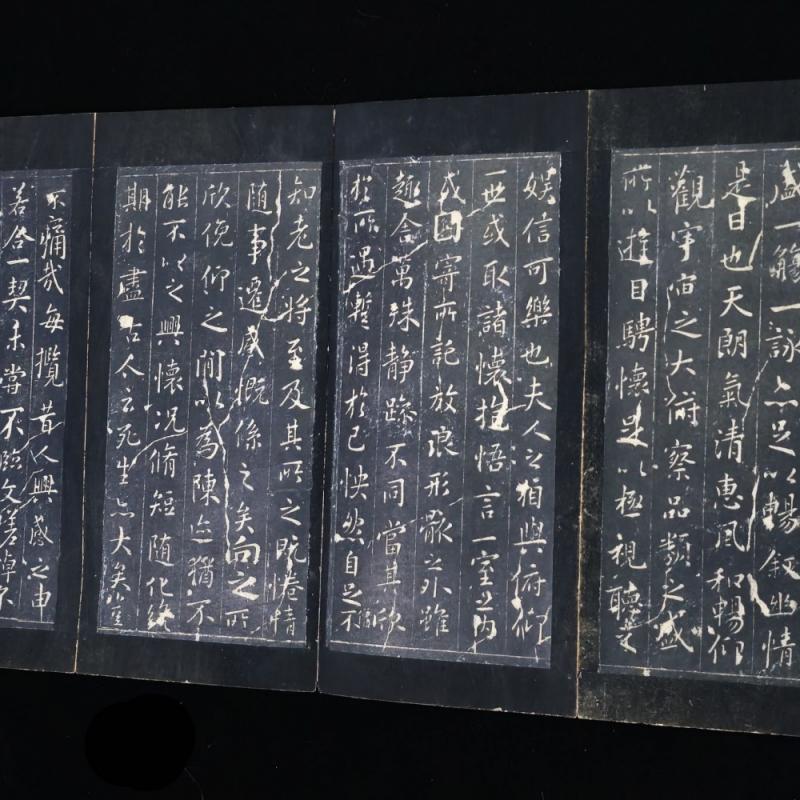 觴一詠亦足以暢叙幽情
是日也天朗氣清惠風和暢仰
觀宇宙之大俯察品類之盛
所以遊目騁懷足以極視聽之
娛信可樂也夫人之相與俯仰
一世或取諸懷抱悟言一室之內
或因寄所託放浪形骸之外雖
趣舍萬殊靜躁不同當其欣
於所遇暫得於己怏然自足不
知老之將至及其所之既惓情
隨事遷感慨係之矣向之所
欣俛仰之閒以為陳迹猶不
能不以之興懷況脩短隨化終
期於盡古人云死生亦大矣豈
不痛哉每攬昔人興感之由
若合一契未嘗不臨文嗟悼不